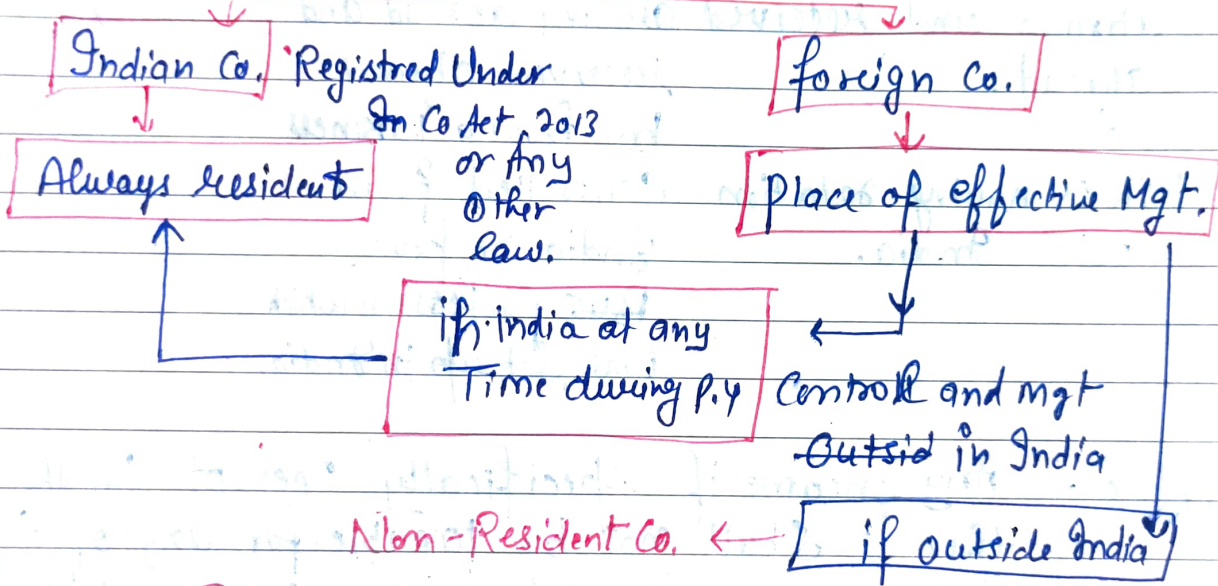 Indian Co.
Registred Under
In Co Act, 2013
or Any
Other
law.
Always resident
foreign Co.
Place of effective Mgt.
if in india at any
Time during P.Y
Control and mgt
Outsid in India
if outside India
Non-Resident Co.